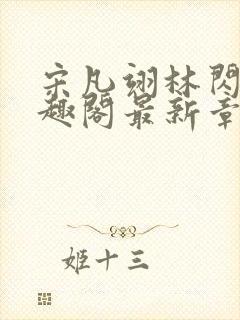 宋凡翊林閃
趣閣最新章
姬十三